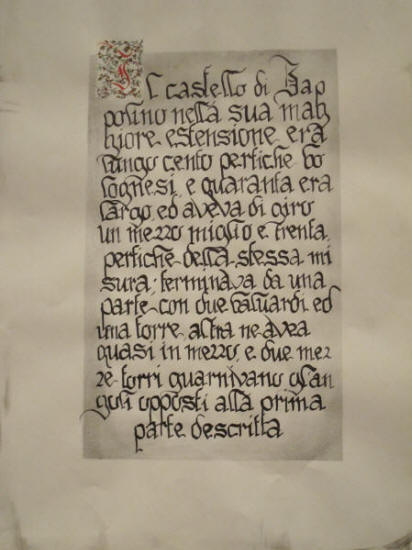 Il castello di Zap
polino nella sua mag
giore estensione era
lungo cento pertiche bo
lognesi, e quaranta era
largo, ed aveva di giro
un mezzo miglio e trenta
pertiche della stessa mi
sura; terminava da una
parte con due baluardi ed
una torre, altra ne avea
quasi in mezzo, e due mez
ze torri guarnivano gl'an
goli opposti alla prima
parte descritta